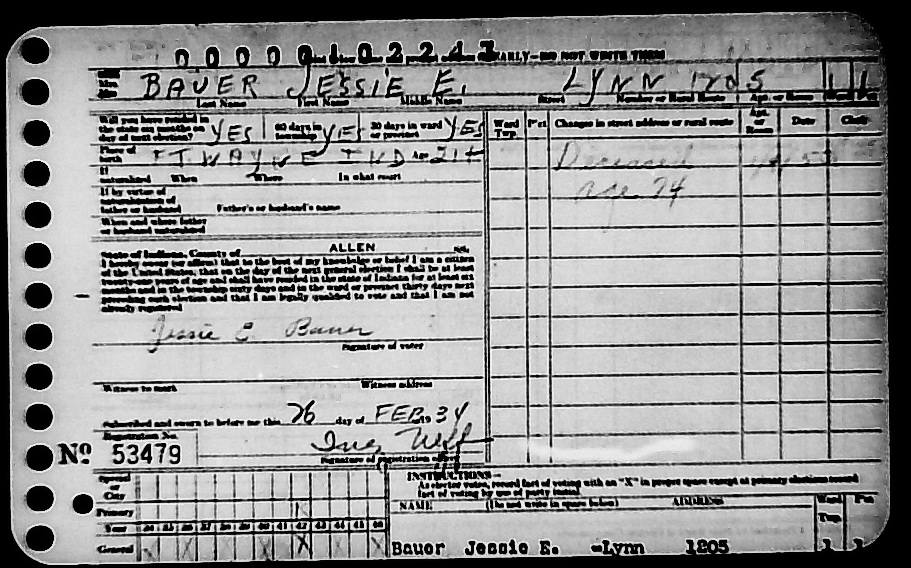 0000010224
EARLY—DO NOT WRITE THESE
BAUER JESSIE E. LYNN 1205 1 1
Last Name First Name Middle Name Street Number or Rural Route Apt. or Room
Will you have resided in the state six months on day of next election? YES 60 days in township YES 30 days in ward or precinct YES
Place of birth FT WAYNE IND Age 21+
If naturalized When Where In what court
If by virtue of naturalization of father or husband Father's or husband's name
When and where father or husband naturalized
Ward Twp. P'ct Changes in street address or rural route Apt. or Room Date Clerk
Deceased
age 74
State of Indiana, County of ALLEN SS.
I hereby swear (or affirm) that to the best of my knowledge or belief I am a citizen
of the United States, that on the day of the next general election I shall be at least
twenty-one years of age and shall have resided in the state of Indiana for at least six
months and in the township sixty days and in the ward or precinct thirty days next
preceding such election and that I am legally qualified to vote and that I am not
already registered
Jessie E Bauer
Signature of voter
Witness to mark Witness address
Subscribed and sworn to before me this 26 day of FEB 1934
Registration No.
Nº 53479
Signature of registration officer
Special or City
Primary
Year 34 35 36 37 38 39 40 41 42 43 44 45 46
General X X X X X
INSTRUCTIONS—
As elector votes, record fact of voting with an "X" in proper space except at primary elections record
fact of voting by use of party initial.
NAME (Do not write in space below) ADDRESS Ward Twp. P'ct
Bauer Jessie E. —Lynn 1205 1 1